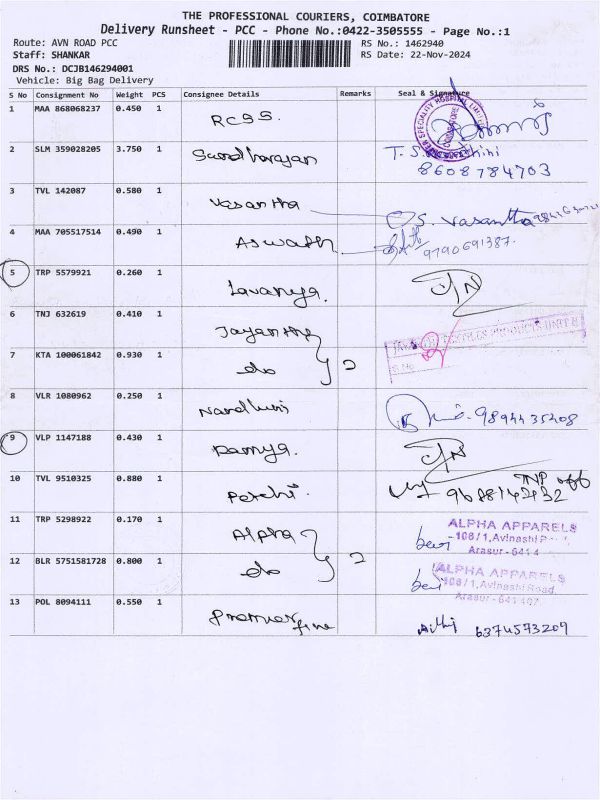 THE PROFESSIONAL COURIERS, COIMBATORE
Delivery Runsheet - PCC - Phone No.:0422-3505555 - Page No.:1
Route: AVN ROAD PCC
RS No.: 1462940
Staff: SHANKAR
RS Date: 22-Nov-2024
DRS No.: DCJB146294001
Vehicle: Big Bag Delivery
S No Consignment No Weight PCS Consignee Details Remarks Seal & Signature
1 MAA 868068237 0.450 1 RCGS.
SPECIALITY HOSPITAL COIMBATORE
2 SLM 359028205 3.750 1
8608784703
3 TVL 142087 0.580 1 Vasantha S. Vasantha
4 MAA 705517514 0.490 1 Aswath 9790691387.
5 TRP 5579921 0.260 1 Lavanya.
6 TNJ 632619 0.410 1 Jayanthy
PRODUCTS UNIT II
7 KTA 100061842 0.930 1 do 2
S.No
8 VLR 1080962 0.250 1 9894435208
9 VLP 1147188 0.430 1 Ramya.
10 TVL 9510325 0.880 1 Petchi. TNP off
9688142432
11 TRP 5298922 0.170 1 Alpha
ALPHA APPARELS
108/1, Avinashi
Arasur - 641 4
12 BLR 5751581728 0.800 1 do 2
ALPHA APPARELS
108/1, Avinashi Road,
Arasur - 641 407
13 POL 8094111 0.550 1 Premier fine 6374573209